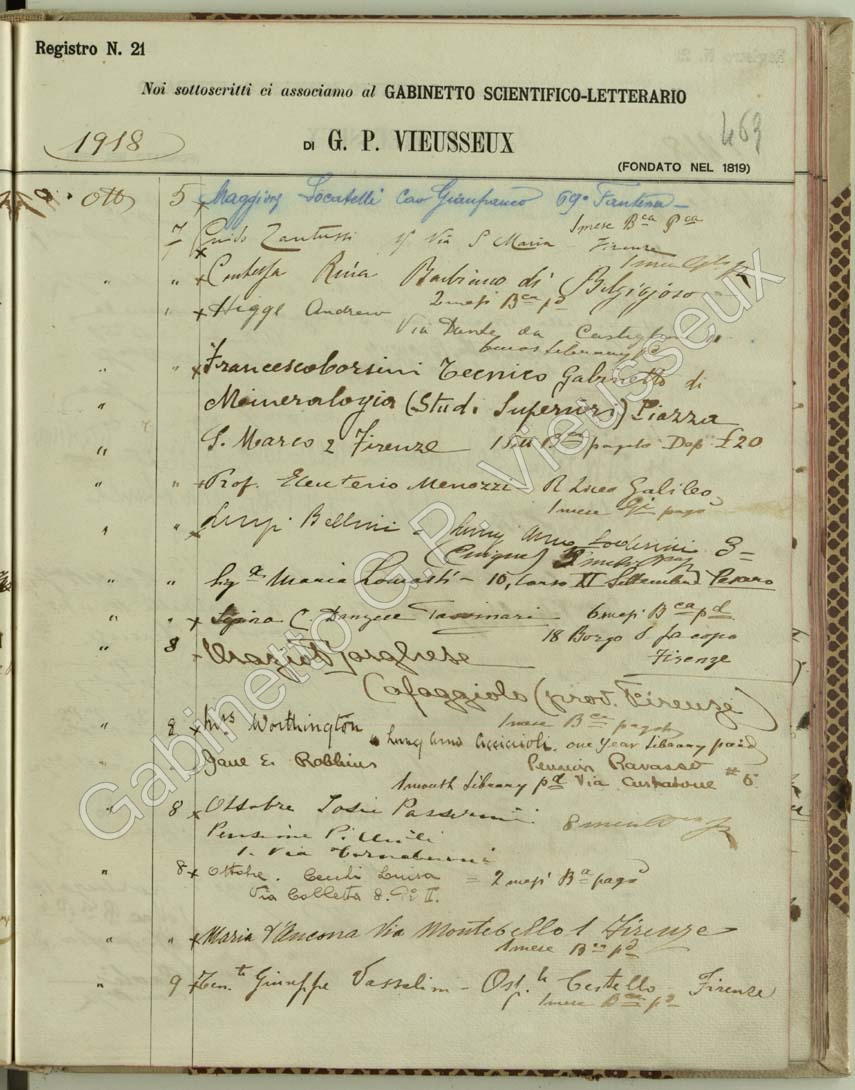 Registro N. 21
Noi sottoscritti ci associamo al GABINETTO SCIENTIFICO-LETTERARIO
463
1918
DI G. P. VIEUSSEUX
(FONDATO NEL 1819)
Ott 5 Maggiore Locatelli Cav Gianfranco 69° Fanteria
1 mese Bca Pca
7 Guido Via S Maria Firenze
" Contessa Barbiano di Belgiojoso
" Higgs Andrew 2 mesi Bca pd
Via Dante da Castiglione
Library pd
" " Francesco Corsini Tecnico Gabinetto di
" Mineralogia (Studi Superiori) Piazza
" S. Marco 2 Firenze pagato Dep. £20
" " Prof. Eleuterio Menozzi R Liceo Galileo
1 mese pagò
" " Luigi Bellini Lung Arno Soderini 3
" " Maria 10, Corso XI Settembre Pesaro
" " C Danzese Tassinari 6 mesi Bca pd
18 Borgo S Jacopo
" 8 Orazio Borghese Firenze
Cafaggiolo (prov. Firenze)
1 mese Bca pagato
" 8 Mrs Worthington Lung Arno Acciaioli. one year Library paid
Jane E. Robbins Pension Ravasso
1 month Library pd Via Curtatone # 5
" 8 Ottobre Passerini
Pensione
1. Via Tornabuoni
" 8 Ottobre. Cecchi Luisa = 2 mesi Ba pagò
Via Colletta 8. Po II.
" " Maria d'Ancona Via Montebello 1 Firenze
1 mese Bca pd
" 9 Tente Giuseppe Vasselini - Osple Cestello Firenze
1 mese Bca pd
Gabinetto G.P. Vieusseux